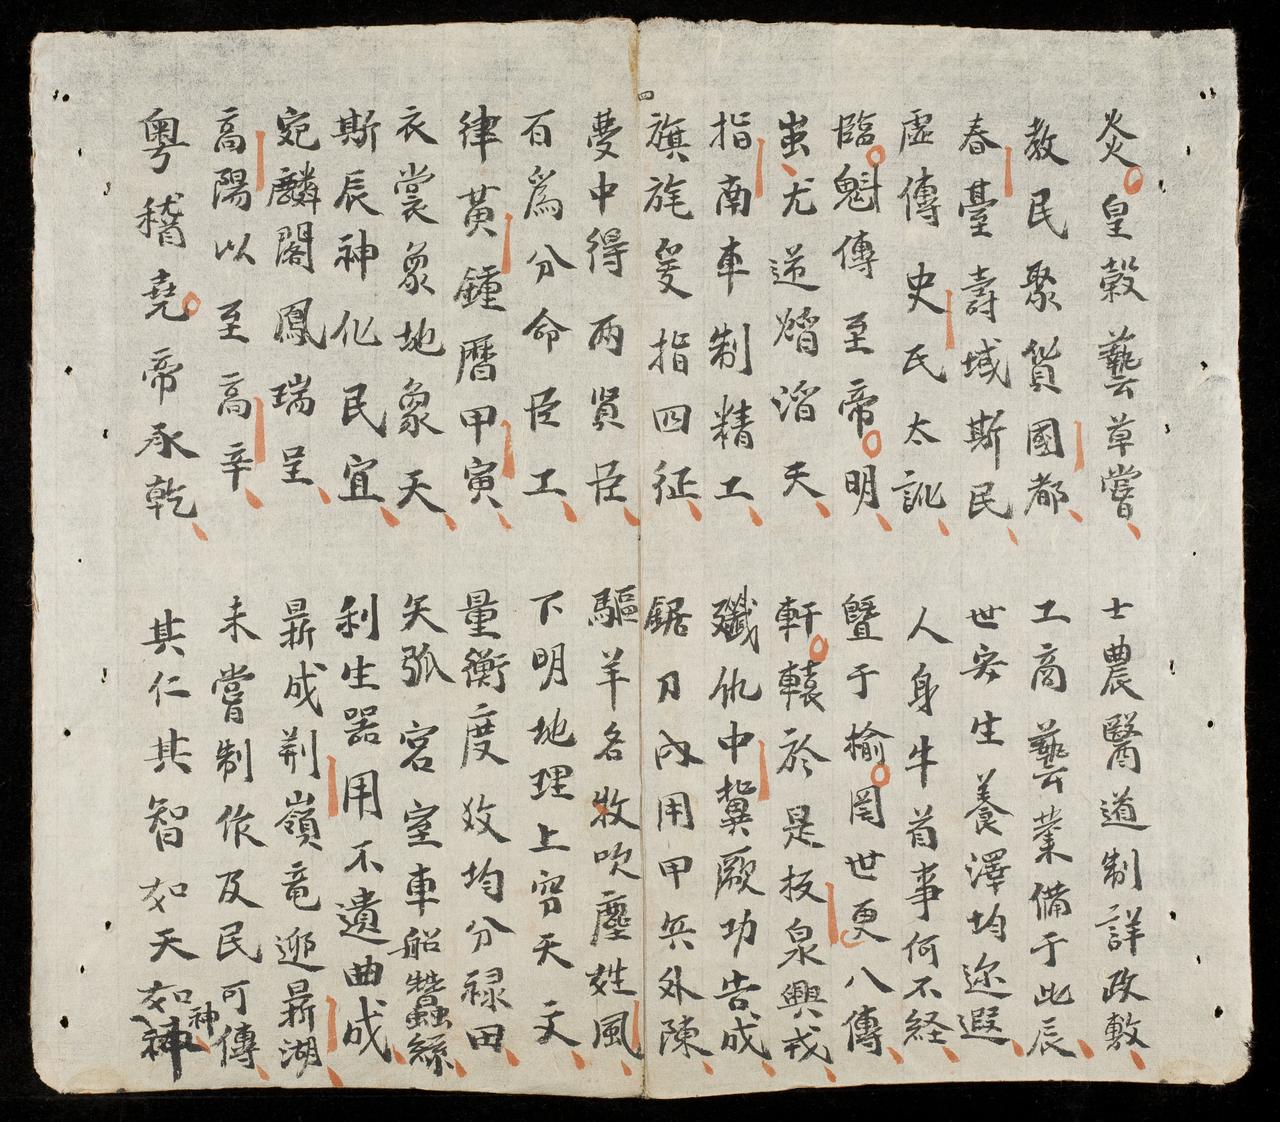 炎皇穀藝草嘗 士農醫道制詳政敷
教民聚貨國都 工商藝業備于此辰
春臺壽域斯民 世安生養澤均迩遐
虛傳史氏太訛 人身牛首事何不経
臨魁傳至帝明 曁于榆罔世更八傳
蚩尤逆熖滔天 軒轅於是板泉興戎
指南車制精工 殲仇中冀厥功告成
旗旄爰指四征 鋸刀內用甲兵外陳
四
夢中得两賢臣 驅羊名牧吹塵姓風
百為分命臣工 下明地理上穷天文
律黃鍾曆甲寅 量衡度效均分禄田
衣裳象地象天 矢弧宮室車船蠶絲
斯辰神化民宜 利生器用不遺曲成
宛麟閣鳳瑞呈 鼎成荆嶺竜迎鼎湖
高陽以至高辛 未嘗制作及民可傳
粵稽堯帝承乾 其仁其智如天如神
神